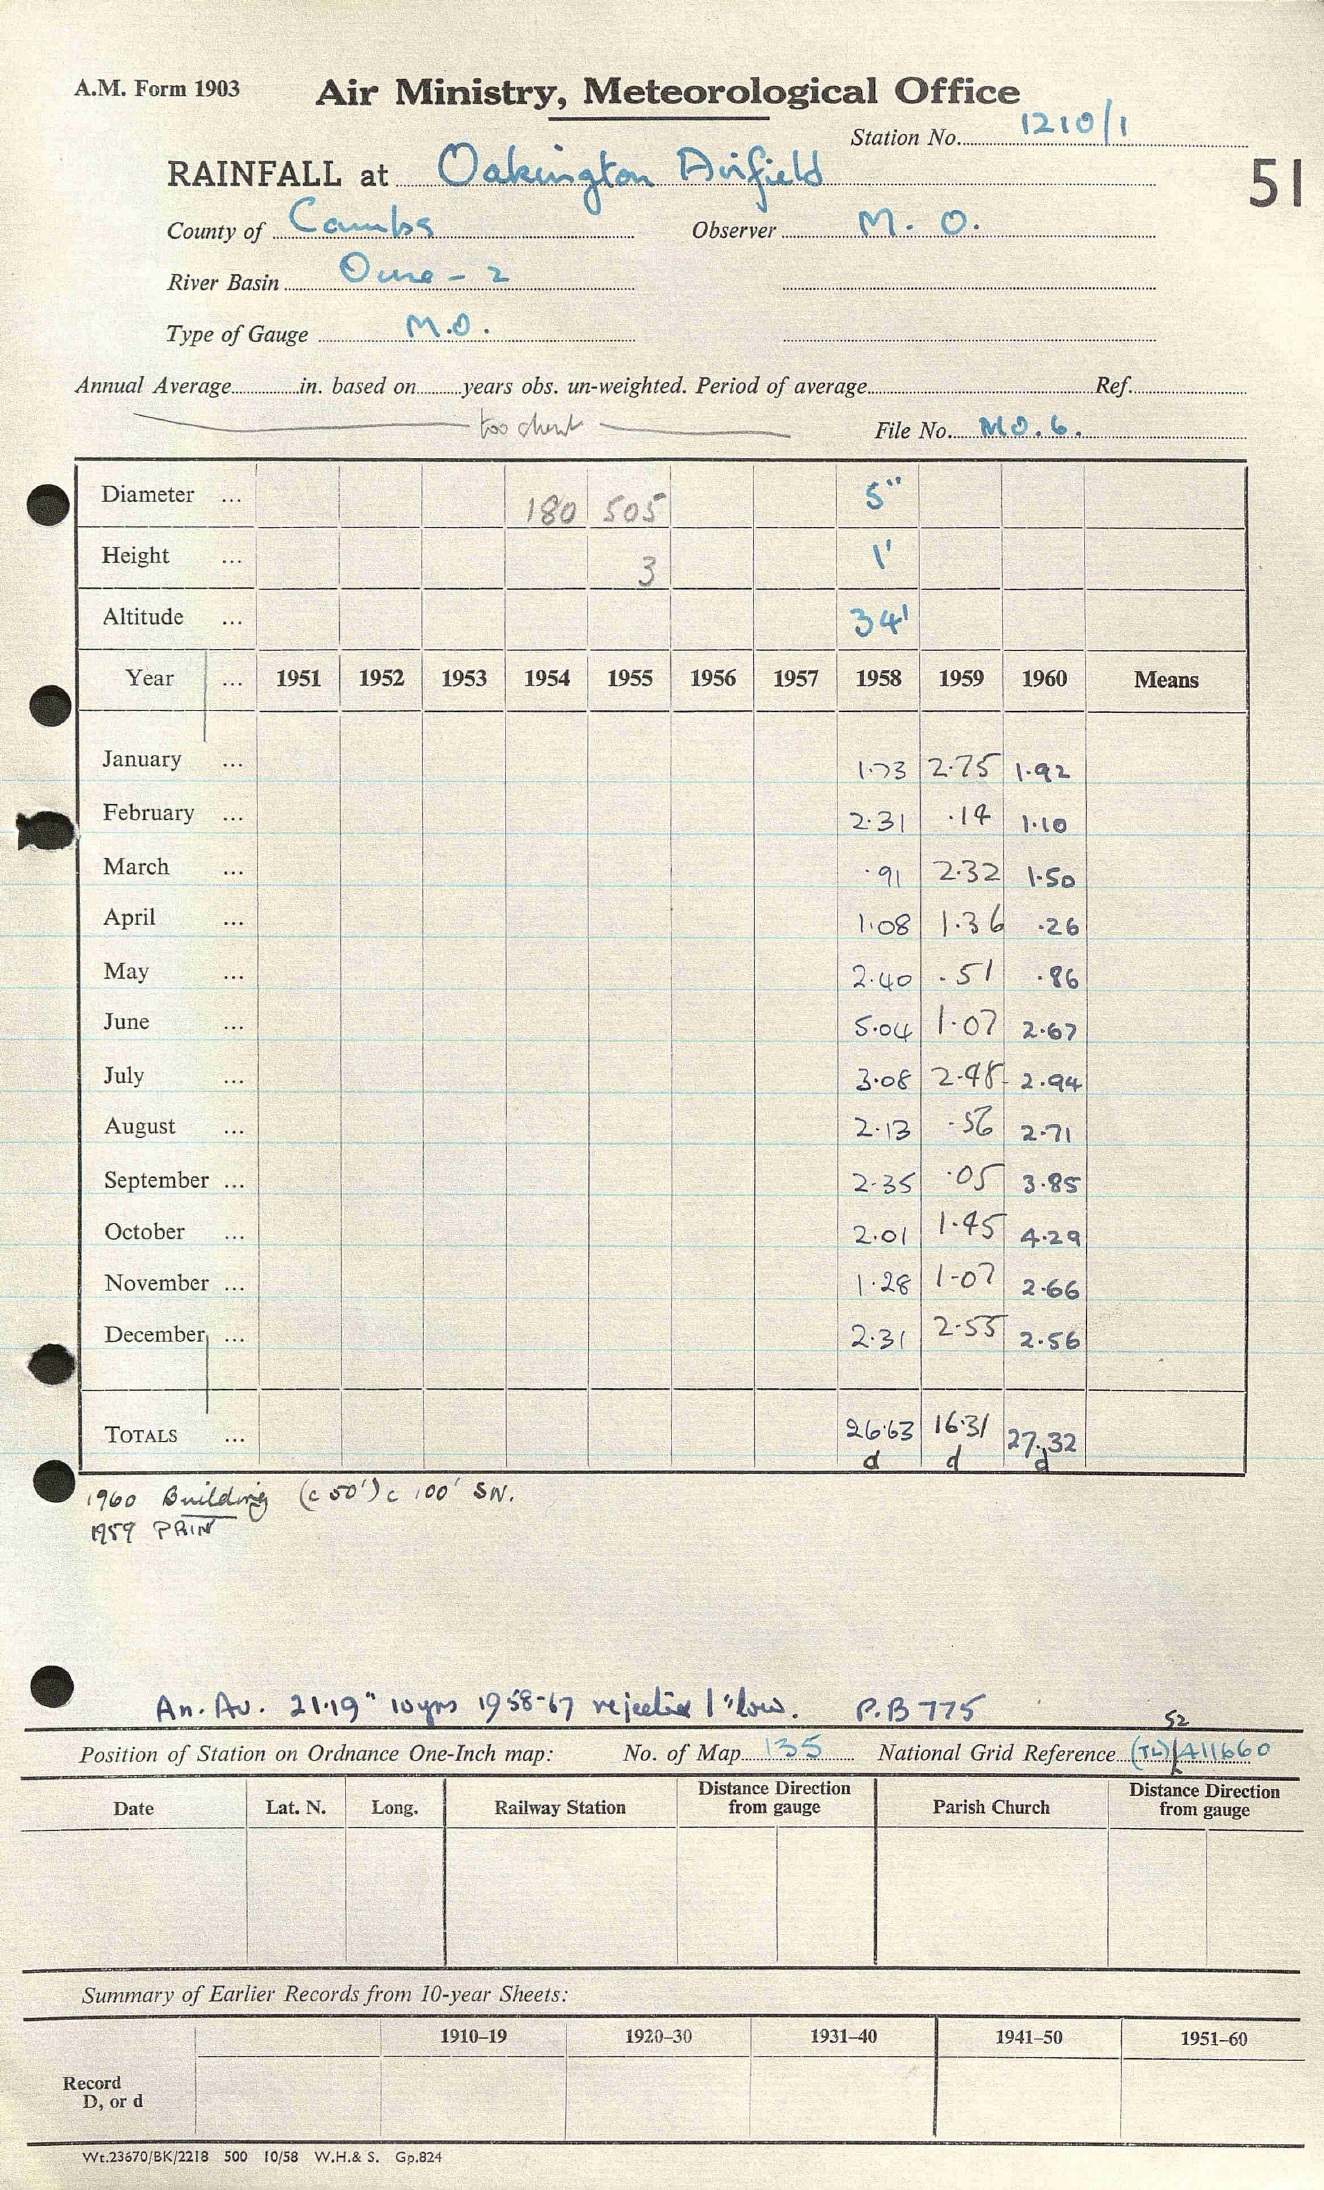 A.M. Form 1903 Air Ministry, Meteorological Office
Station No. 1210/1
RAINFALL at Oakington Airfield 51
County of Cambs Observer M. O.
River Basin Ouse - 2
Type of Gauge M.O.
Annual Average in. based on years obs. un-weighted. Period of average Ref.
too short File No. MO.6.
Diameter ... 180 505 5"
Height ... 3 1'
Altitude ... 34'
Year ... 1951 1952 1953 1954 1955 1956 1957 1958 1959 1960 Means
January ... 1.73 2.75 1.92
February ... 2.31 .14 1.10
March ... .91 2.32 1.50
April ... 1.08 1.36 .26
May ... 2.40 .51 .86
June ... 5.04 1.07 2.67
July ... 3.08 2.48 2.94
August ... 2.13 .56 2.71
September ... 2.35 .05 3.85
October ... 2.01 1.45 4.29
November ... 1.28 1.07 2.66
December ... 2.31 2.55 2.56
TOTALS ... 26.63 16.31 27.32
d d d
1960 Building (c 50') c 100' SW.
1959 PRINT
An. Av. 21.19" 10yrs 1958-67 rejected 1" low. P.B 775
52
Position of Station on Ordnance One-Inch map: No. of Map 135 National Grid Reference (TL) 411660
Date Lat. N. Long. Railway Station Distance Direction from gauge Parish Church Distance Direction from gauge
Summary of Earlier Records from 10-year Sheets:
1910–19 1920–30 1931–40 1941–50 1951–60
Record
D, or d
Wt.23670/BK/2218 500 10/58 W.H.& S. Gp.824